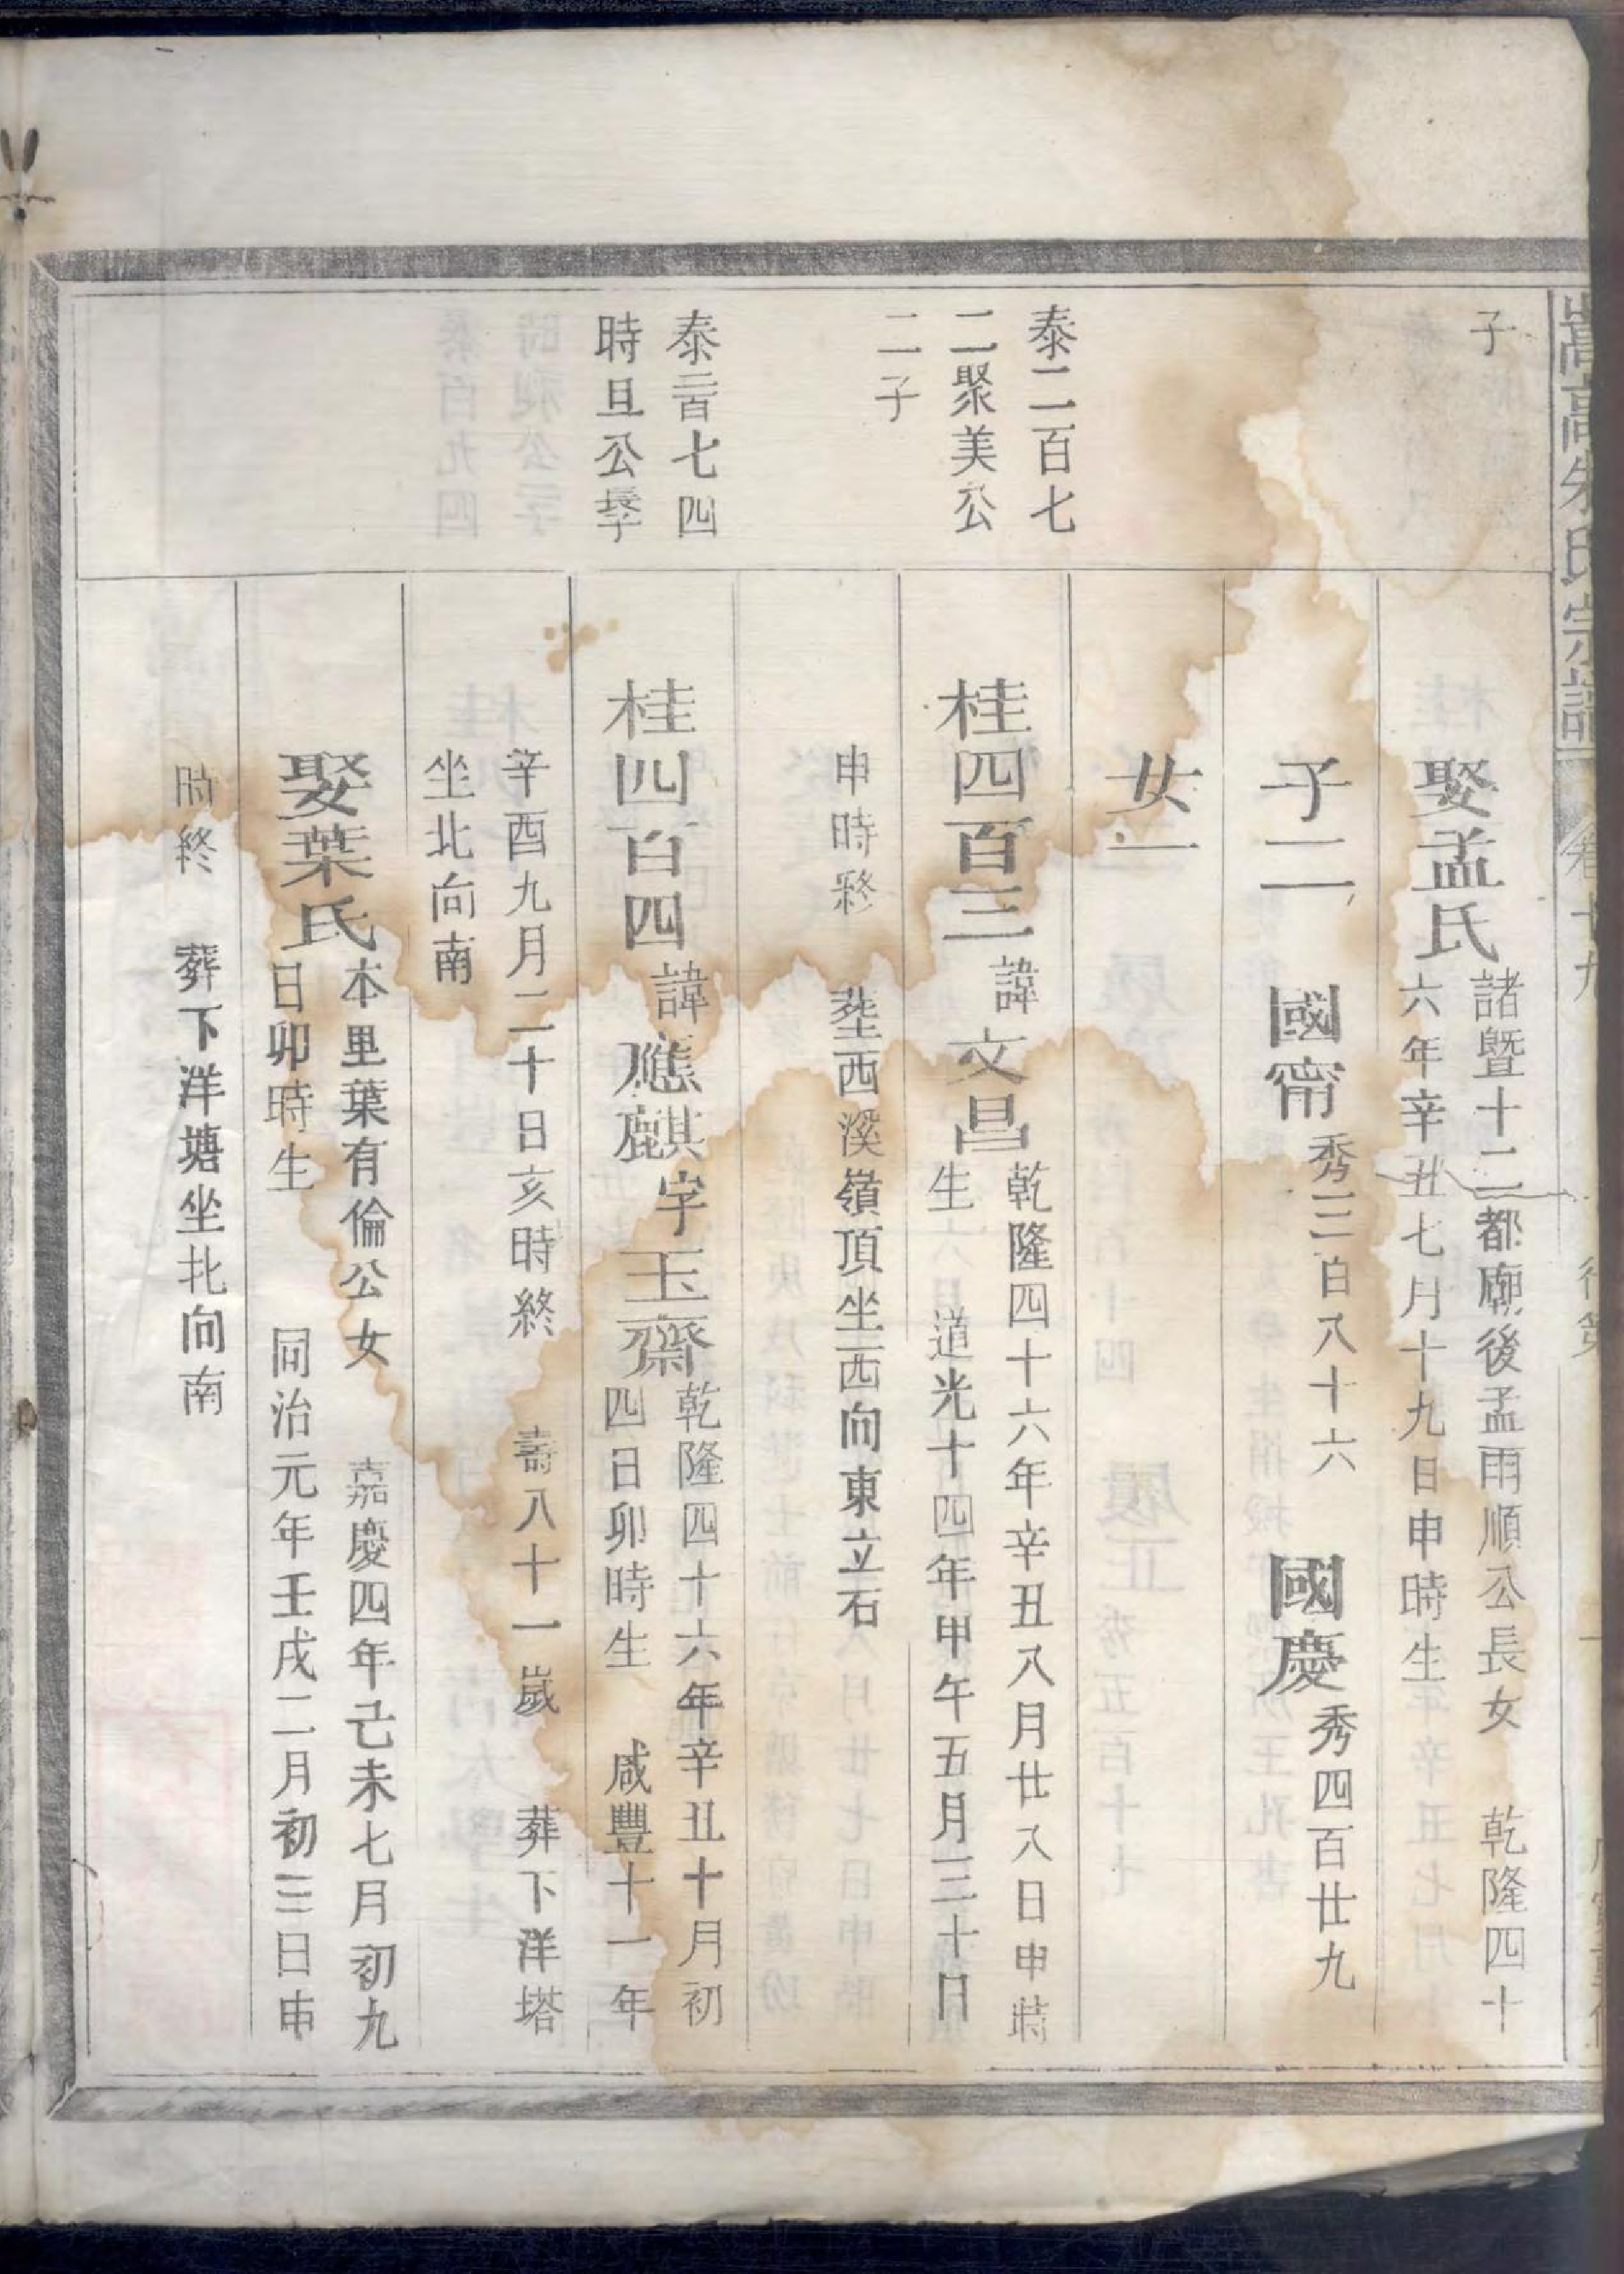 嵩高朱氏宗譜
卷十九
行第
子
娶孟氏
諸暨十二都廟後孟雨順公長女 乾隆四十
六年辛丑七月十九日申時生
子二 國甯 秀三百八十六 國慶 秀四百廿九
女一
泰二百七
二聚美公
二子
桂四百三 諱文昌
乾隆四十六年辛丑八月廿八日申時
生 道光十四年甲午五月三十日
申時終 葬西溪嶺頂坐西向東立石
泰二百七四
時旦公長子
桂四百四 諱應麒 字玉齋
乾隆四十六年辛丑十月初
四日卯時生 咸豐十一年
辛酉九月二十日亥時終 壽八十一歲 葬下洋塔
坐北向南
娶葉氏
本里葉有倫公女 嘉慶四年己未七月初九
日卯時生 同治元年壬戌二月初三日申
時終 葬下洋塘坐北向南